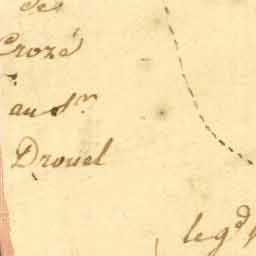 de
Crozé
au Sr
Drouel
le gd